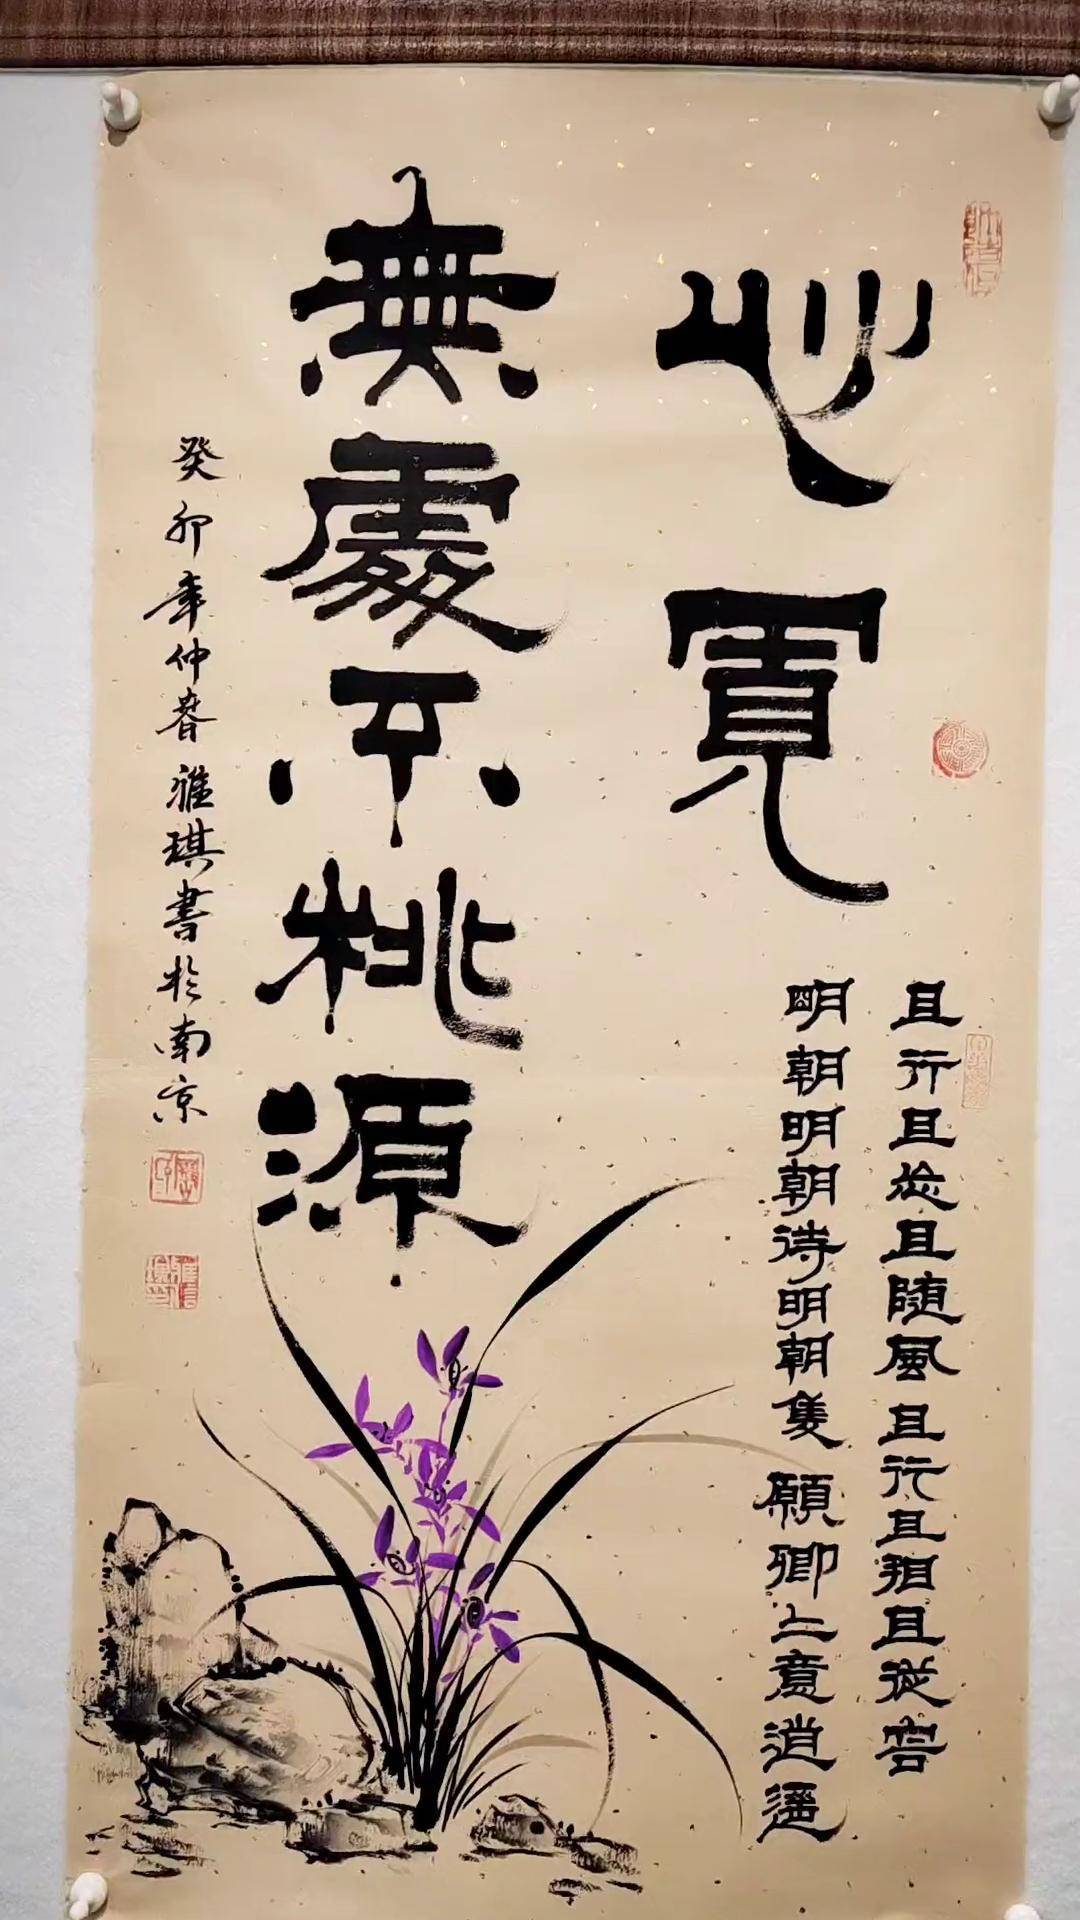 心寬
且行且忘且随風且行且且從容
明朝明朝待明朝隻願卿上意逍遥
無處不桃源
癸卯年仲春雅琪書於南京